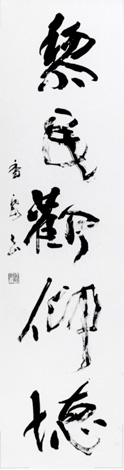 黎民歡仰德